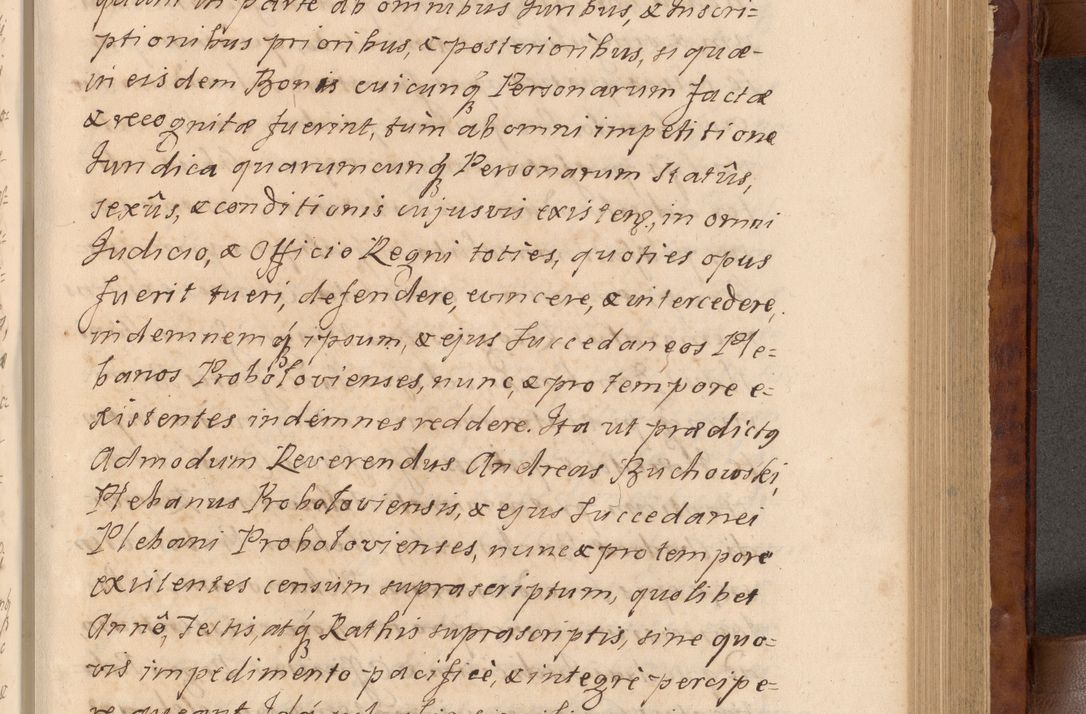 quam in parte ab omnibus Juribus, & Inscri=
ptionibus prioribus, & posterioribus, si quæ
in eisdem Bonis cuicunq₃ Personarum factæ
& recognitæ fuerint, tum ab omni impetitione
Juridica quarumcunq₃ Personarum statûs,
sexûs, & conditionis cujusvis existen., in omni
Judicio, & Officio Regni toties, quoties opus
fuerit tueri, defendere, evincere, & intercedere,
indemnemq́₃ ipsum, & ejus Succedaneos Ple=
banos Probołovienses, nunc, & pro tempore e=
xistentes indemnes reddere. Ita ut prædictꝯ
Admodum Reverendus Andreas Buchowski,
Plebanus Probołoviensis, & ejus Succedanei
Plebani Probołovienses, nunc & pro tempore
existentes censum suprascriptum, quolibet
Annô, Festis, atq́₃ Rathis suprascriptis, sine quo=
vis impedimento pacificè, & integrè percipe=
re queant. Idq́₃